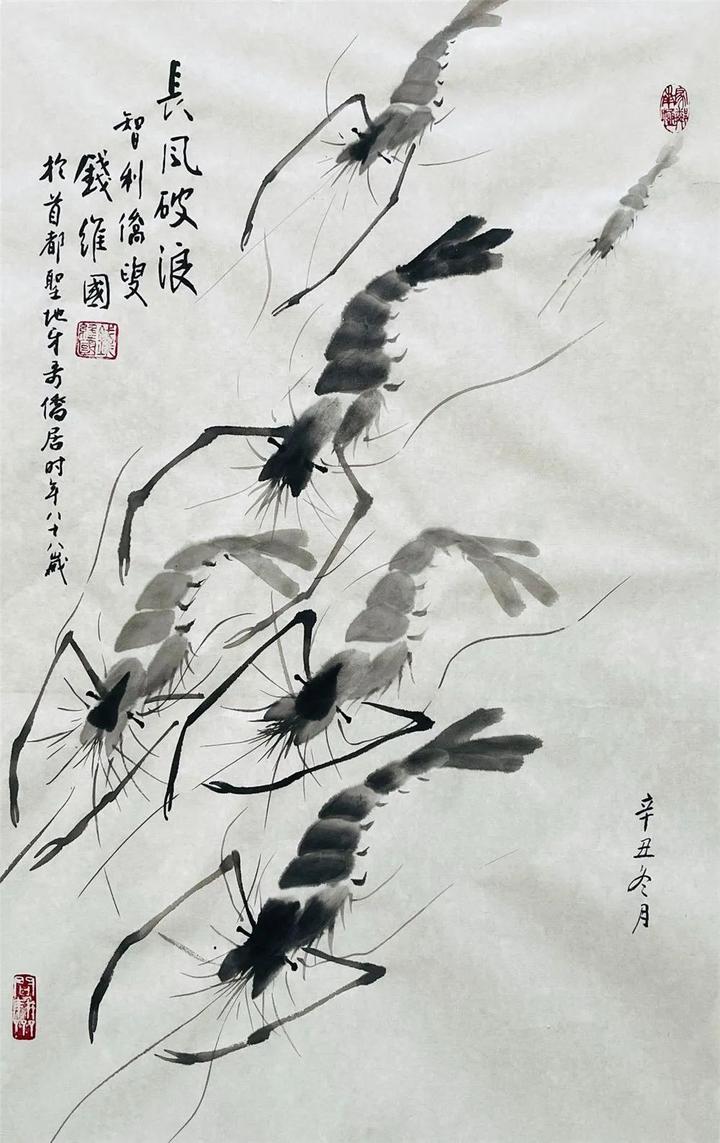 長风破浪
智利僑叟
錢維國
於首都聖地牙哥僑居时年八十八歲
辛丑冬月